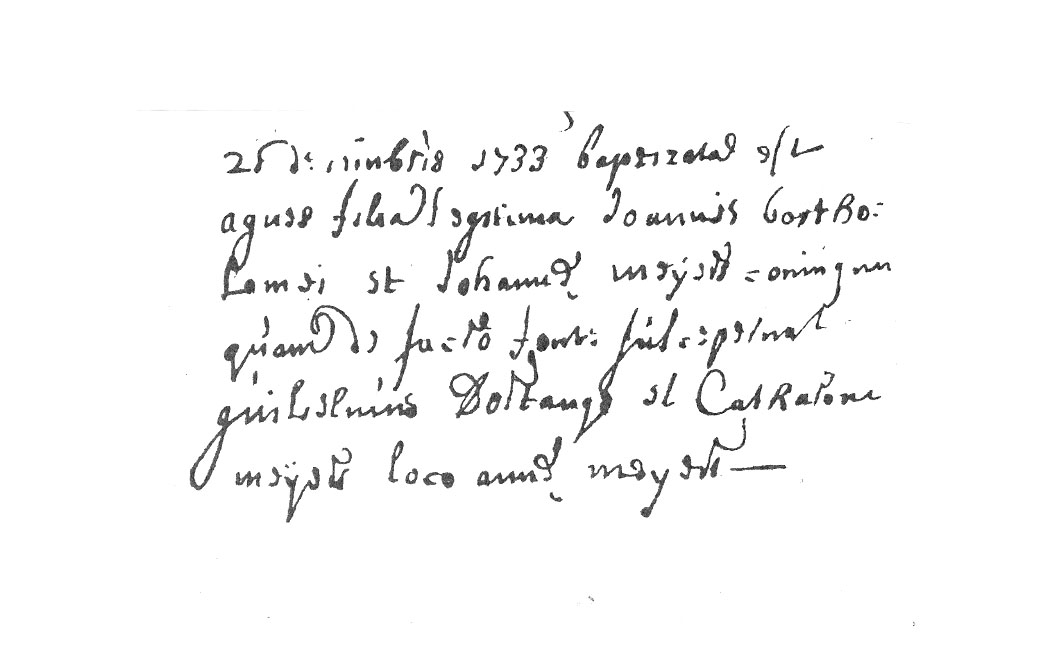 25 decembris 1733 baptizata est
agnes filia legitima Joannis bartho-
lomei et Johannæ meÿers coniugum
quam de sacro fonte susceperunt
guilielmus et Catharina
meÿers loco annæ meyers